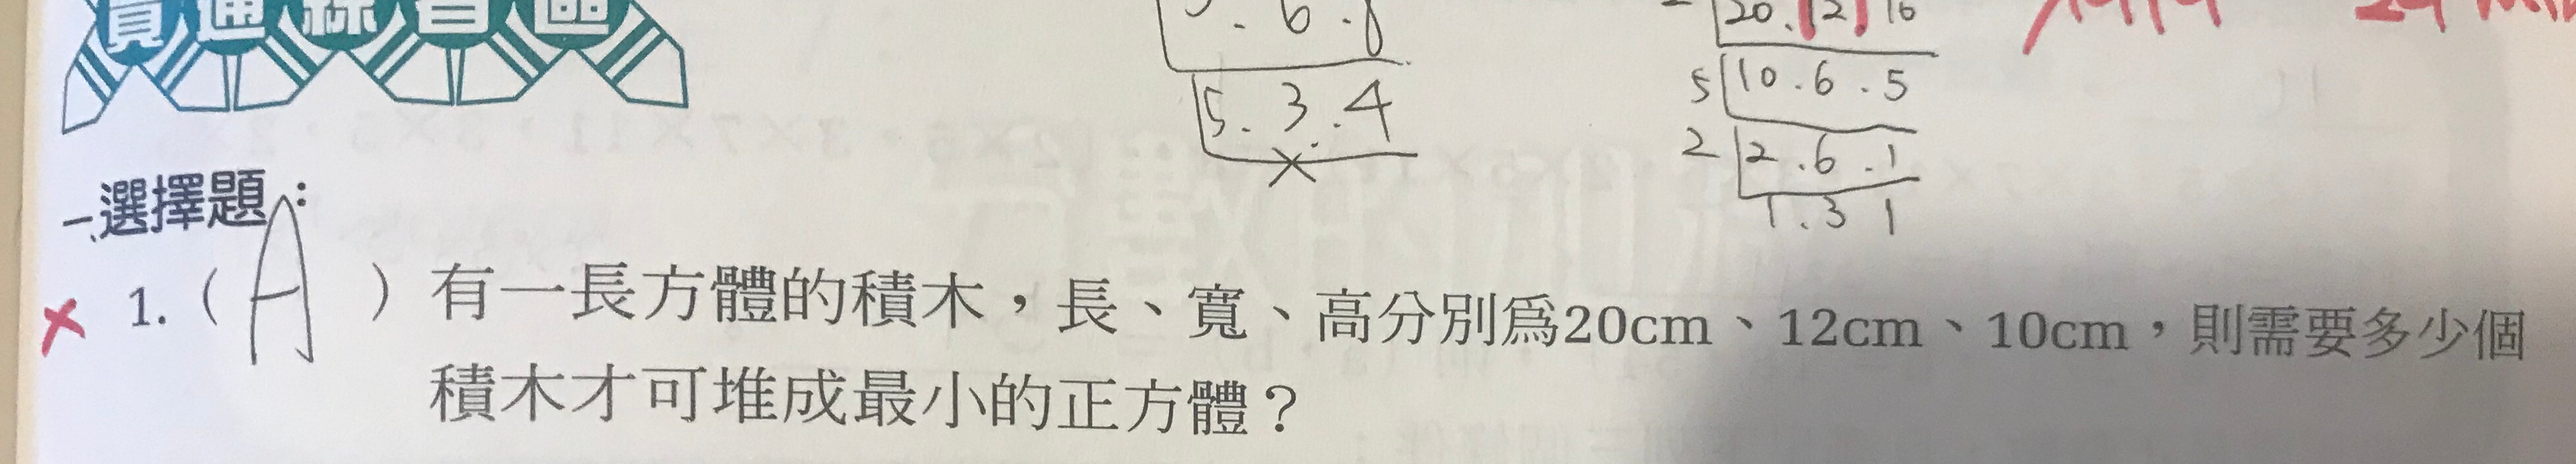 6 . 8
5 . 3 . 4
×
20 . 12 16
5 10 . 6 . 5
2 2 . 6 . 1
1 . 3 1
一、選擇題：
× 1. ( A ) 有一長方體的積木，長、寬、高分別為20cm、12cm、10cm，則需要多少個
積木才可堆成最小的正方體？